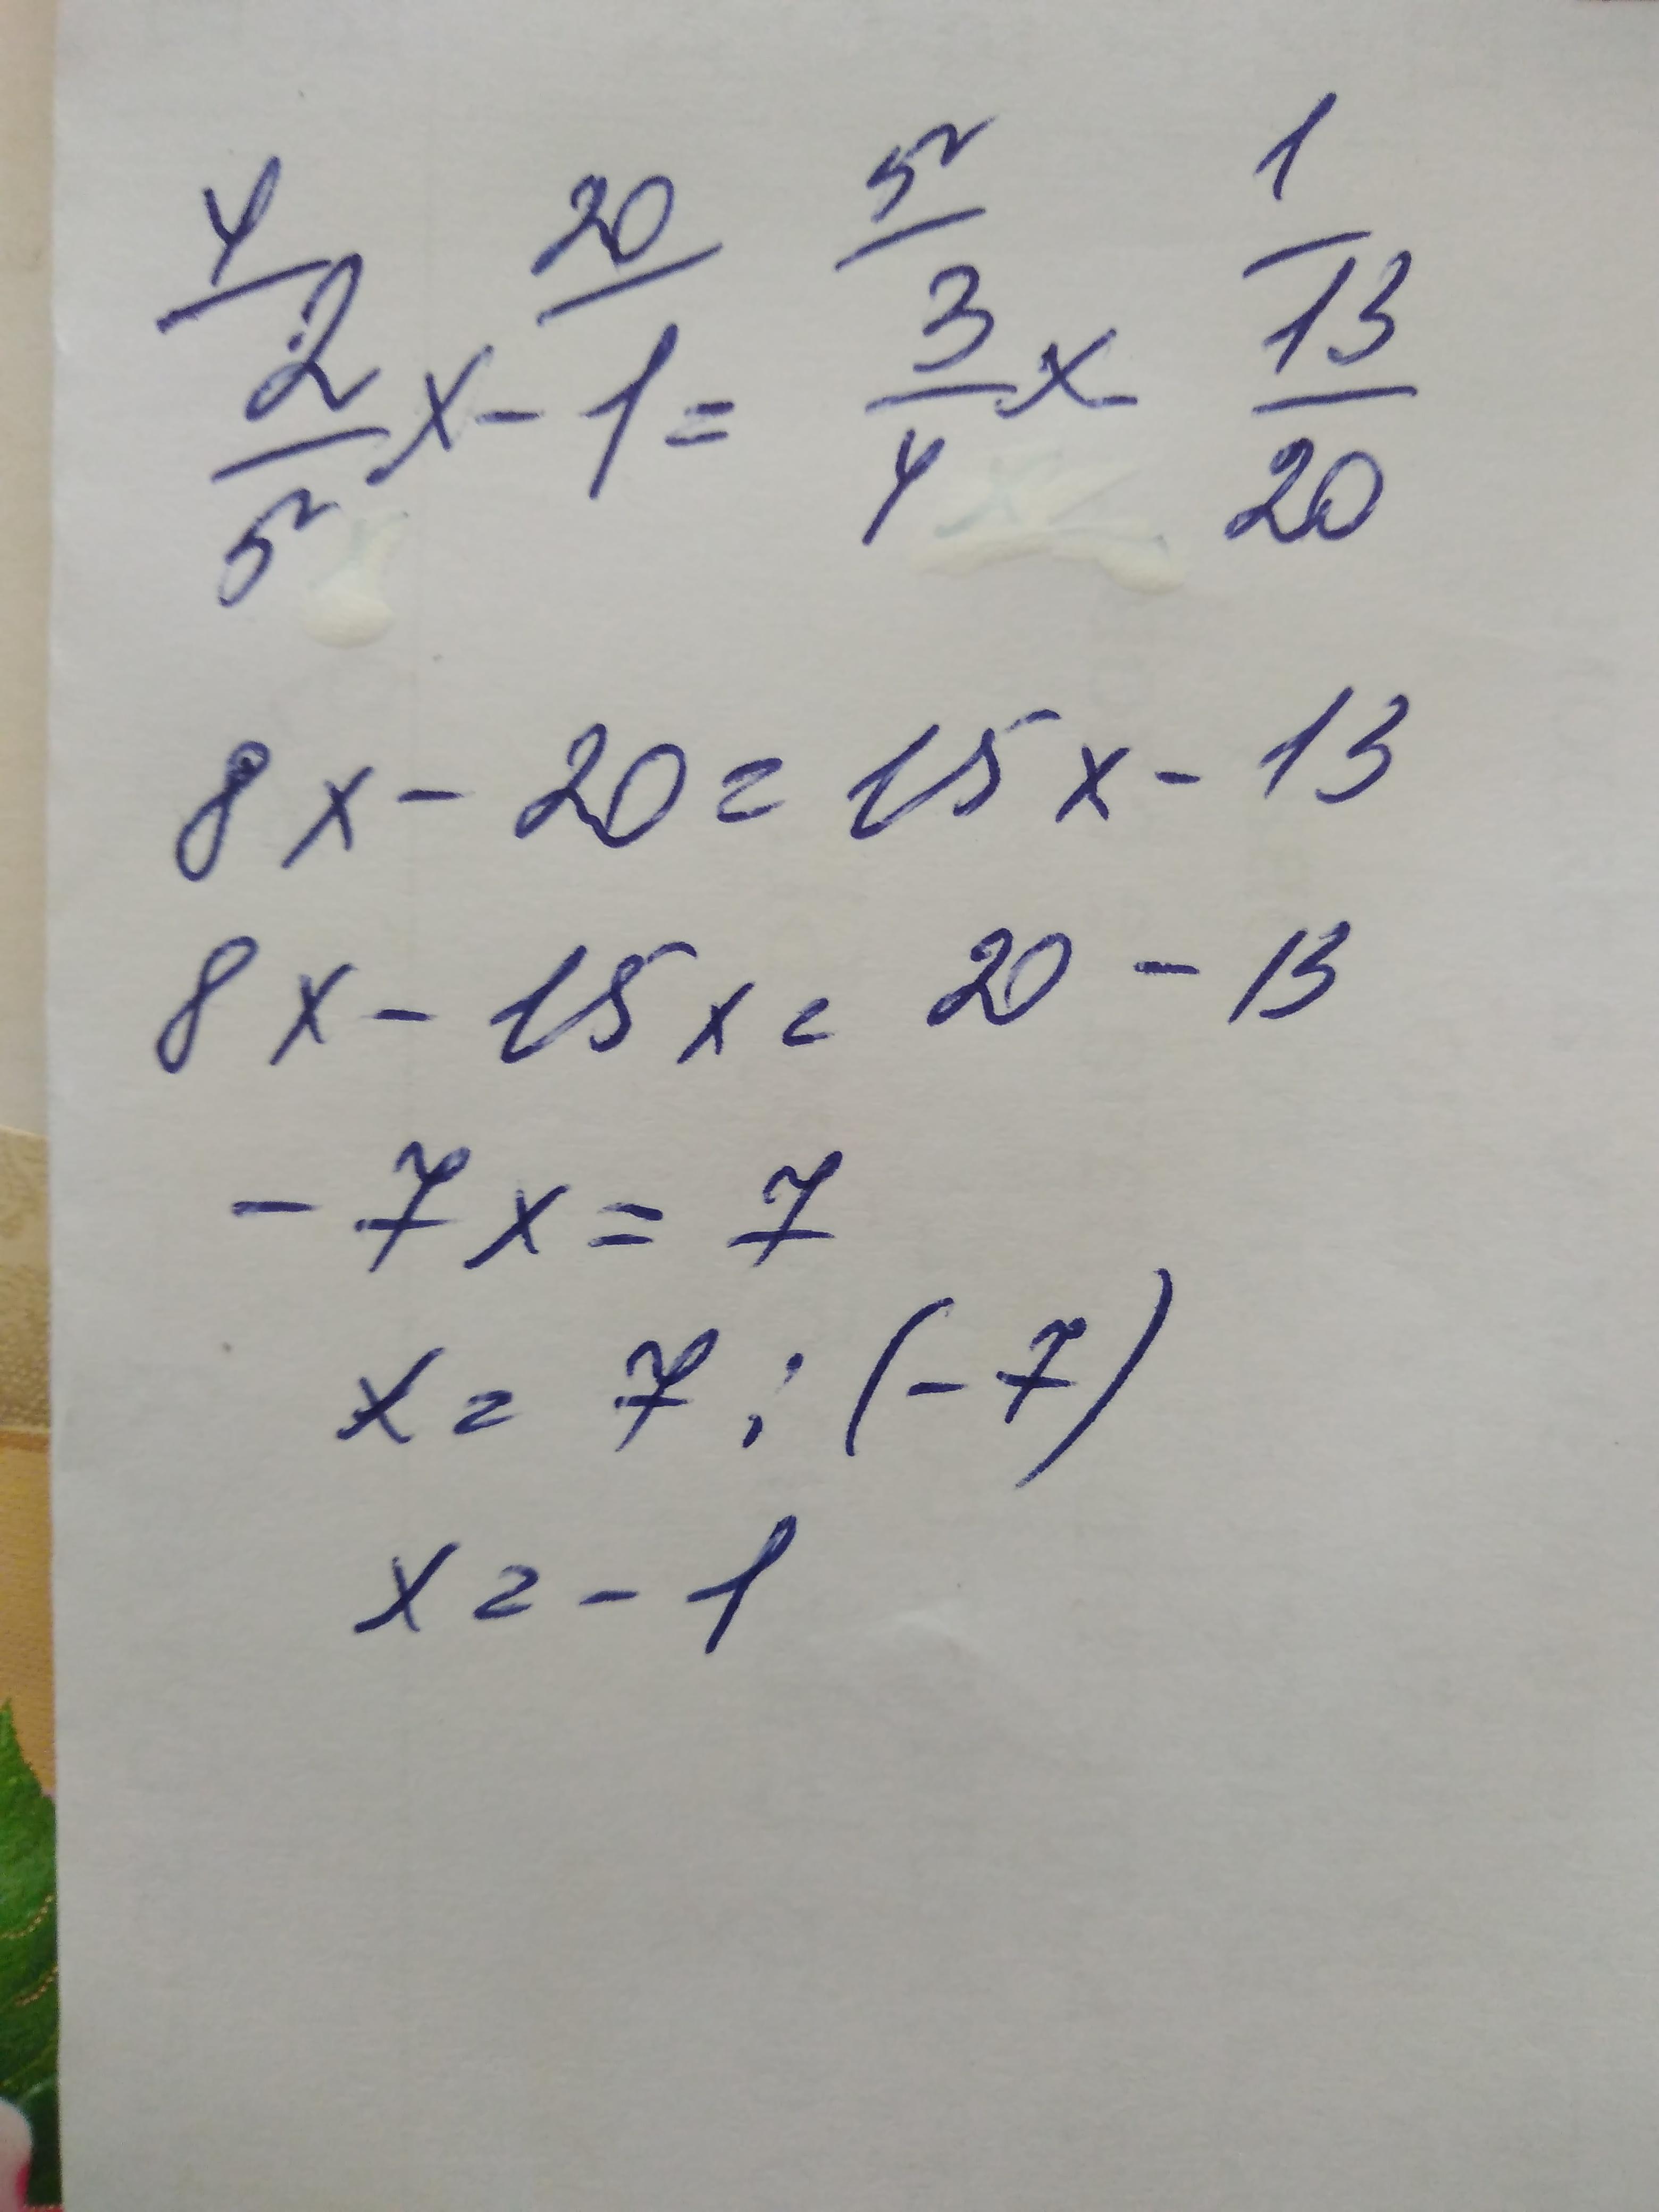 4/ 20/ 5/ 1/
2/5 x - 1 = 3/4 x - 13/20
8x - 20 = 15x - 13
8x - 15x = 20 - 13
- 7x = 7
x = 7 : (-7)
x = - 1